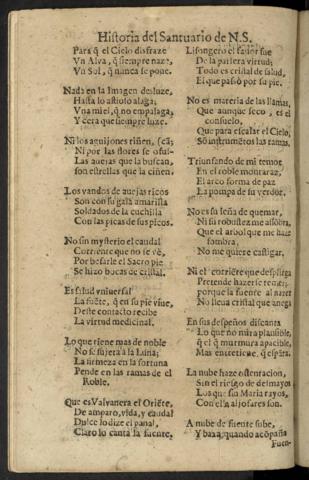 Historia del Santuario de N.S.
Para q̃ el Cielo disfraze
Vn Alva, q̃ siempre naze,
Vn Sol, q̃ nunca se pone.
Nada en la Imagen desluze,
Hasta lo astioso alaga;
Vna miel, q̃ no empalaga;
Y cera que siempre luze.
Ni los aguijones riñen,
Ni por las flores se
Las auejas que la buscan,
son estrellas que la ciñen.
Los vandos de auejas ricos
Son con su gala amarilla
Soldados de la cuchilla
Con las picas de sus picos.
No sin mysterio el caudal
Corriente que no se vè,
Por besarle el Sacro pie
Se hizo bocas de cristal.
Es salud vniuersal
La fuẽte, q̃ en su pie viue,
Deste contacto recibe
La virtud medicinal.
Lo que tiene mas de noble
No se sujeta à la Luna;
La firmeza en la fortuna
Pende en las ramas de el
Roble.
Que es Valvanera el Oriẽte,
De amparo, vida, y caudal
Dulce lo dize el panal,
Claro lo canta la fuente.
Lisongero el fauor fue
De la parlera virtud;
Todo es cristal de salud,
El que passò por su pie.
No es materia de las llamas,
Que aunque seco, es el
consuelo,
Que para escalar el Cielo,
Sõ instrumẽtos las ramas.
Triunfando de mi temor
En el roble montaraz,
El arco forma de paz
La pompa de su verdor.
No es su leña de quemar,
Ni su robustez me assõbra,
Que el arbol que me haze
sombra,
No me quiere castigar.
Ni el corriẽte que despliega
Pretende hazerse
porque la fuente al
No lleua cristal que anega
En sus despeños discanta
Lo que no mira plausible,
q̃ el q̃ murmura apacible,
Mas entretiene, q̃ espãta.
La nube haze ostentacion,
Sin el riesgo de desmayos
Los que su Maria rayos,
Con ella aljofares son.
A nube de fuente sube,
Y baxa, quando acõpaña
Fuen-